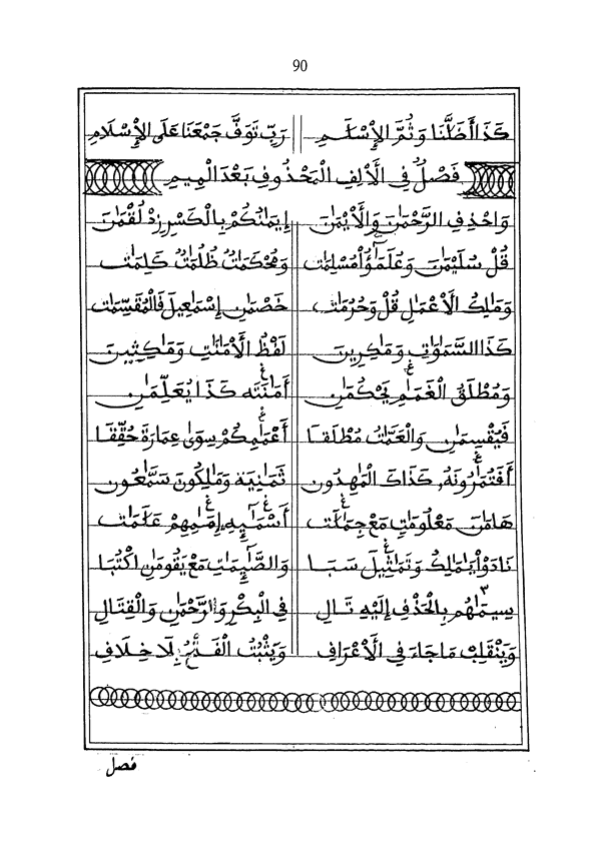 90
كَذَا أَضَلَّنَا وَثُمَّ الْإِسْلَٰمِ رَبِّ تَوَفَّ جَمْعَنَا عَلَى الْإِسْلَامِ
فَصْلٌ فِي الْأَلِفِ الْمَحْذُوفِ بَعْدَ الْمِيمِ
وَاحْذِفِ الرَّحْمَٰنَ وَالْأَيْمَٰنَ إِيمَٰنُكُمْ بِالْكَسْرِ زِدْ لُقْمَٰنَ
قُلْ سُلَيْمَٰنَ وَعُلَمَٰٓؤُا مُسْلِمَٰت وَمُحْكَمَٰتٌ ظُلُمَٰتٌ كَلِمَٰت
وَمَٰلِكِ الْأَعْمَٰلِ قُلْ وَحُرُمَٰت خَصْمَٰنِ إِسْمَٰعِيلَ فَالْمُقَسِّمَٰت
كَذَا السَّمَٰوَٰتِ وَمَٰكِرِينَ لَفْظُ الْأَمَٰنَٰتِ وَمَٰكِثِينَ
وَمُطْلَقُ الْغَمَٰمِ يَحْكُمَٰنِ أَمَٰنَتَه كَذَا يُعَلِّمَٰنِ
فَيُقْسِمَٰنِ وَالْعَمَّٰتُ مُطْلَقَا أَعْمَٰمِكُمْ سِوَىٰ عِمَارَةَ حُقِّقَا
أَفَتُمَٰرُونَهُ، كَذَاكَ الْمَٰهِدُون ثَمَٰنِيَة وَمَٰلِكُونَ سَمَّٰعُون
هَامَٰنَ مَعْلُومَٰتٍ مَعْ جِمَٰلَت أَسْمَٰٓئِهِ إِمَٰمِهِمْ عَلَٰمَٰت
نَادَوْا يَٰمَٰلِكُ وَتَمَٰثِيلَ سَبَا وَالصَّٰٓئِمَٰتِ مَعْ يَقُومَٰنِ اكْتُبَا
سِيمَٰهُم بِالْحَذْفِ إِلَيْهِ تَالِ فِي الْبِكْرِ وَالرَّحْمَٰنِ وَالْقِتَالِ
وَيَنْقَلِبْ مَا جَاءَ فِي الْأَعْرَافِ وَيَثْبُتُ الْفَتْحُ بِلَا خِلَافِ
فصل